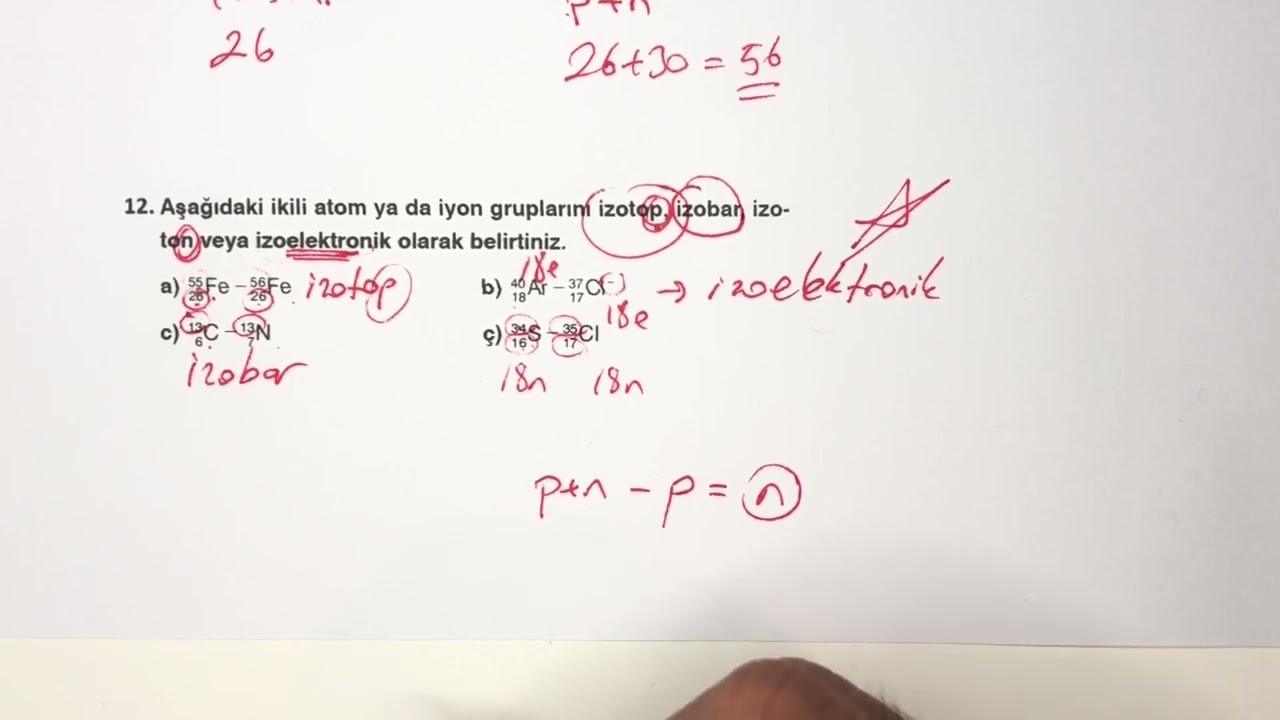 p+n
26
26+30 = 56
12. Aşağıdaki ikili atom ya da iyon gruplarını izotop, izobar, izo-
ton veya izoelektronik olarak belirtiniz.
a) ⁵⁵₂₆Fe – ⁵⁶₂₆Fe izotop
18e
b) ⁴⁰₁₈Ar – ³⁷₁₇Cl⁻ → izoelektronik
18e
c) ¹³₆C – ¹³₇N
izobar
ç) ³⁴₁₆S – ³⁵₁₇Cl
18n 18n
p+n - p = n